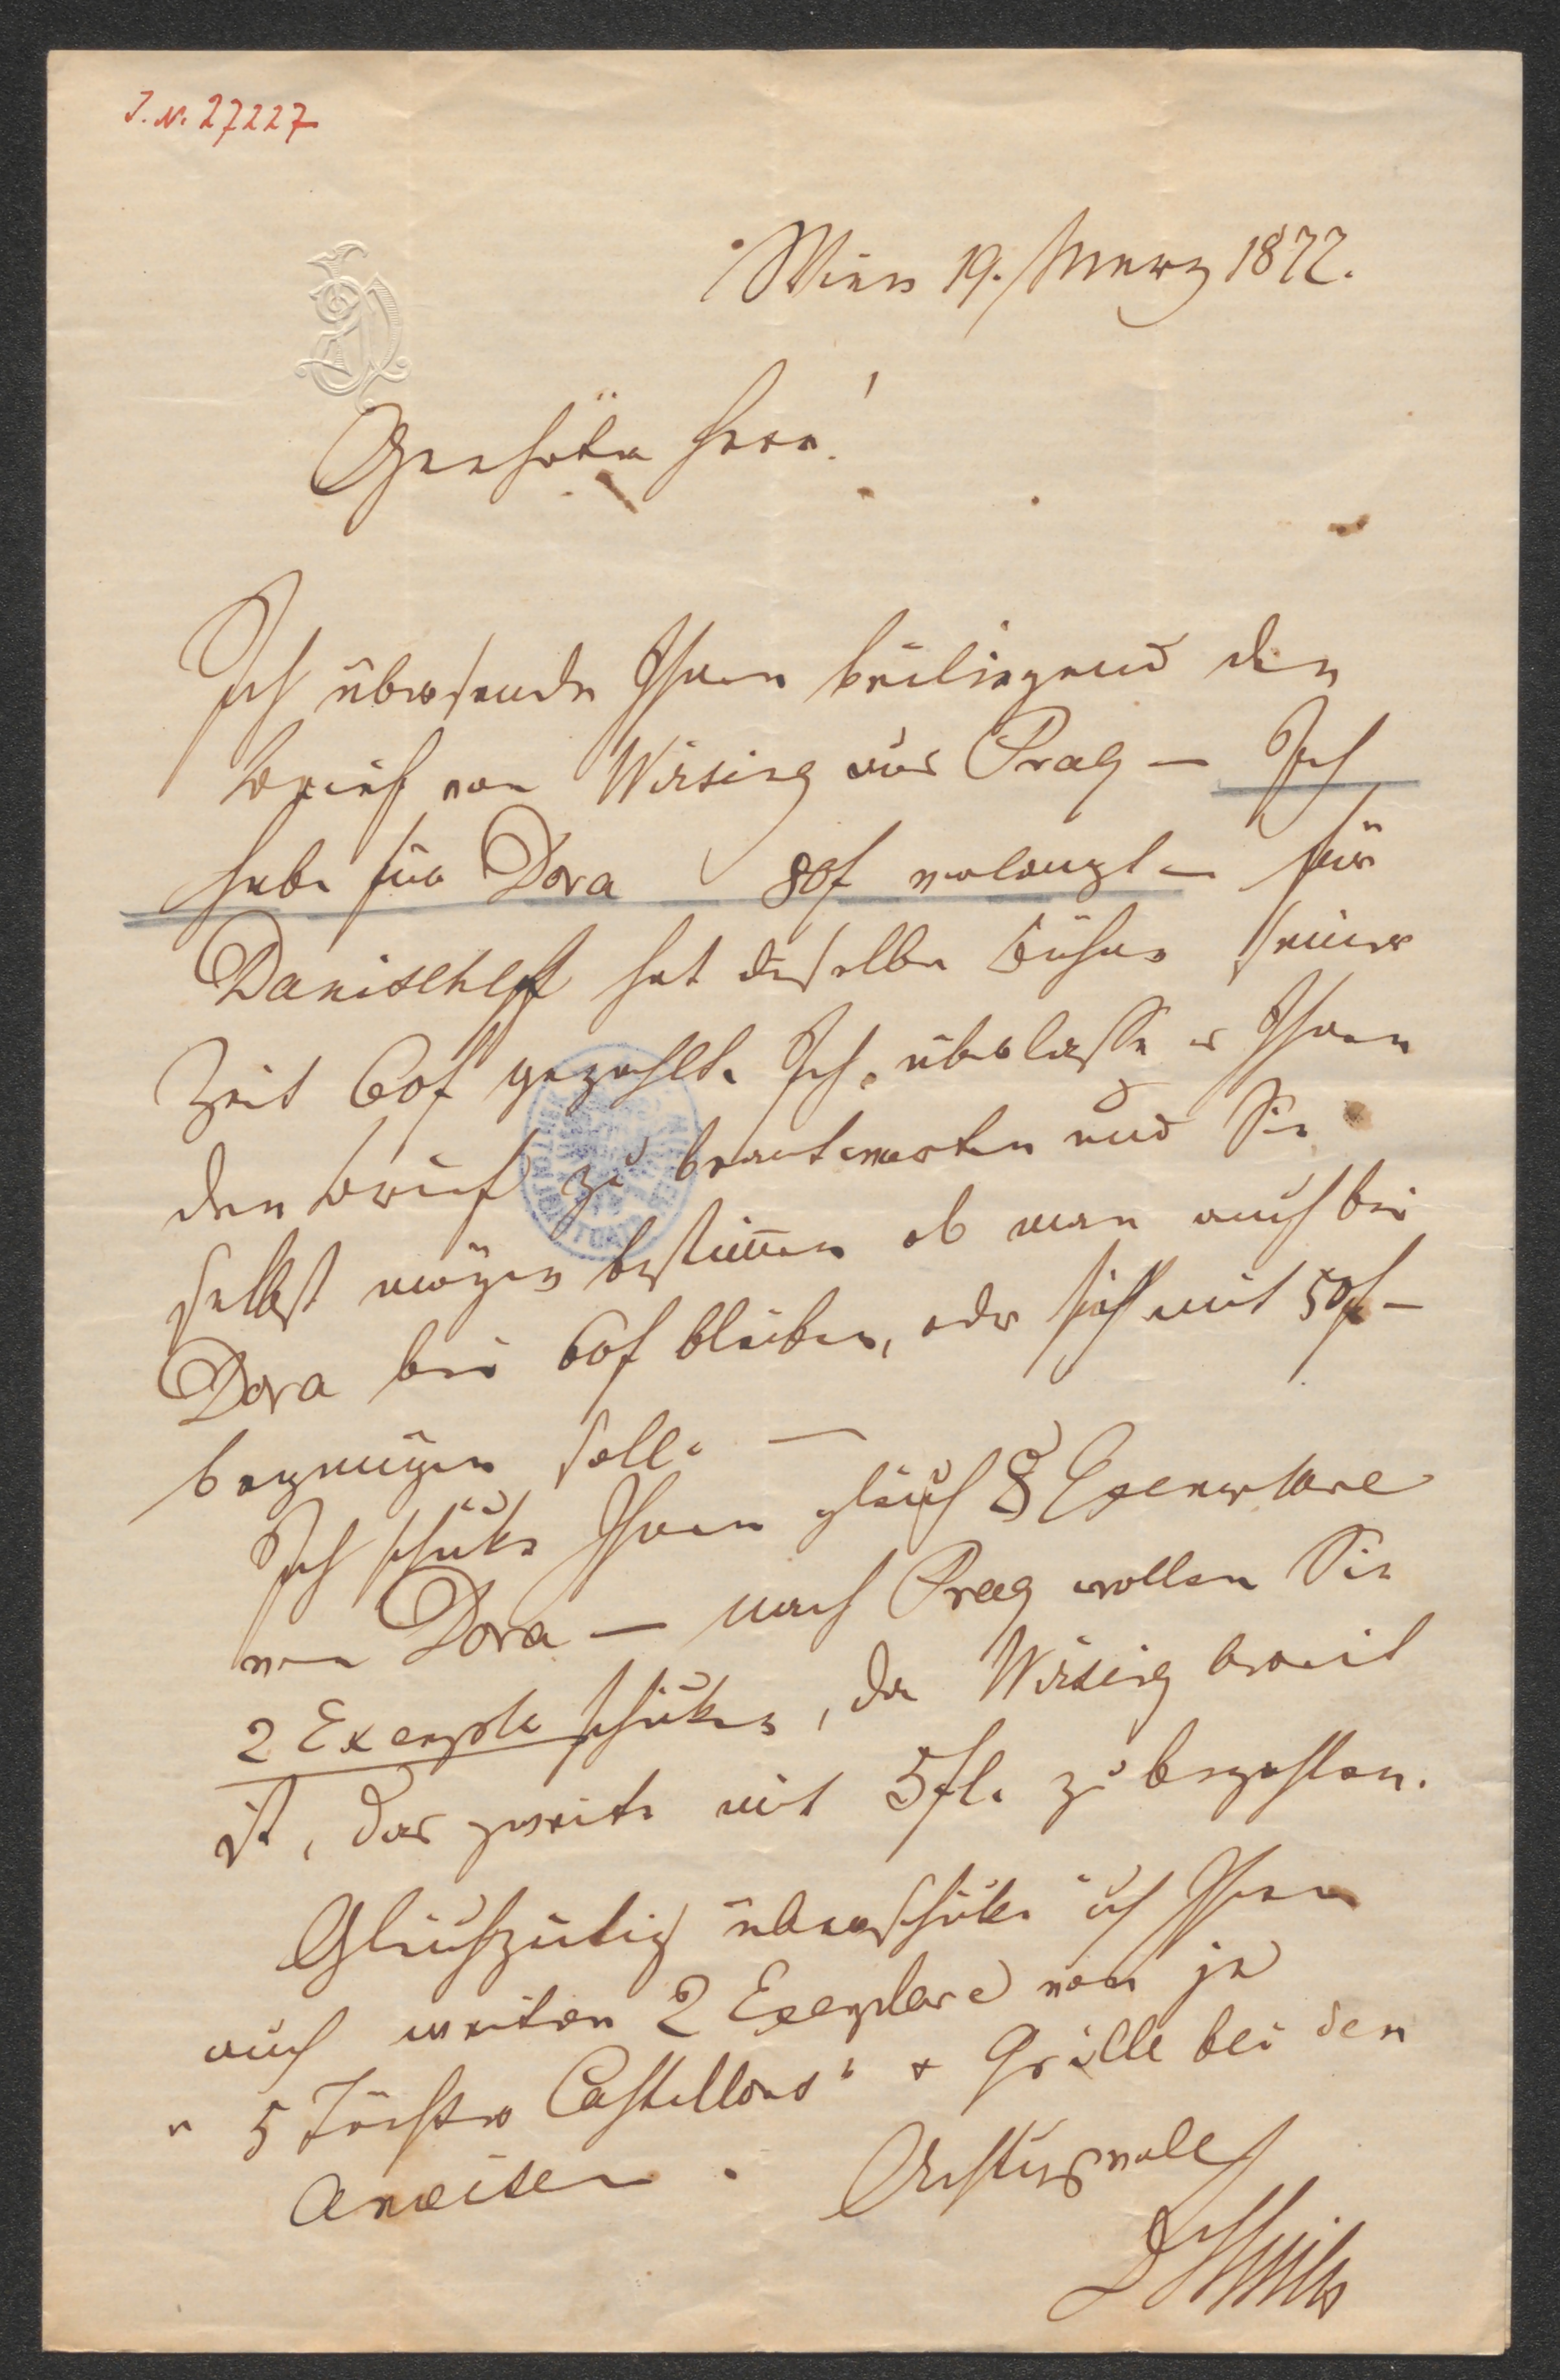 I. N. 27227
Wien 19. Maerz 1877.
Geehrter Herr!
Ich übersende Ihnen beiliegend den
Brief von Wirsing aus Prag – Ich
habe für Dora 80f verlangt – für
Danischeff hat dieselbe Bühne seiner
Zeit 60f gezahlt. Ich überlasse es Ihnen
den Brief zu beantworten und Sie
selbst mögen bestim̄en ob man auch bei
Dora bei 60f bleiben, oder sich mit 50f –
begnügen soll. –
Ich schicke Ihnen gleich 8 Exemplare
von Dora – nach Prag wollen Sie
2 Exemple schicken, da Wirsing bereit
ist, das zweite mit 5fl. zu bezahlen.
Gleichzeitig überschicke ich Ihnen
auch weiter 2 Exemplare von je
„5 Töchter Castillons" & Grille bei den
Ameisen. Achtungsvoll